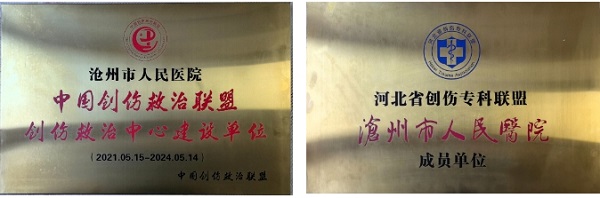 沧州市人民医院
中国创伤救治联盟
创伤救治中心建设单位
(2021.05.15-2024.05.14)
中国创伤救治联盟
河北省创伤专科联盟
滄州市人民醫院
成员单位